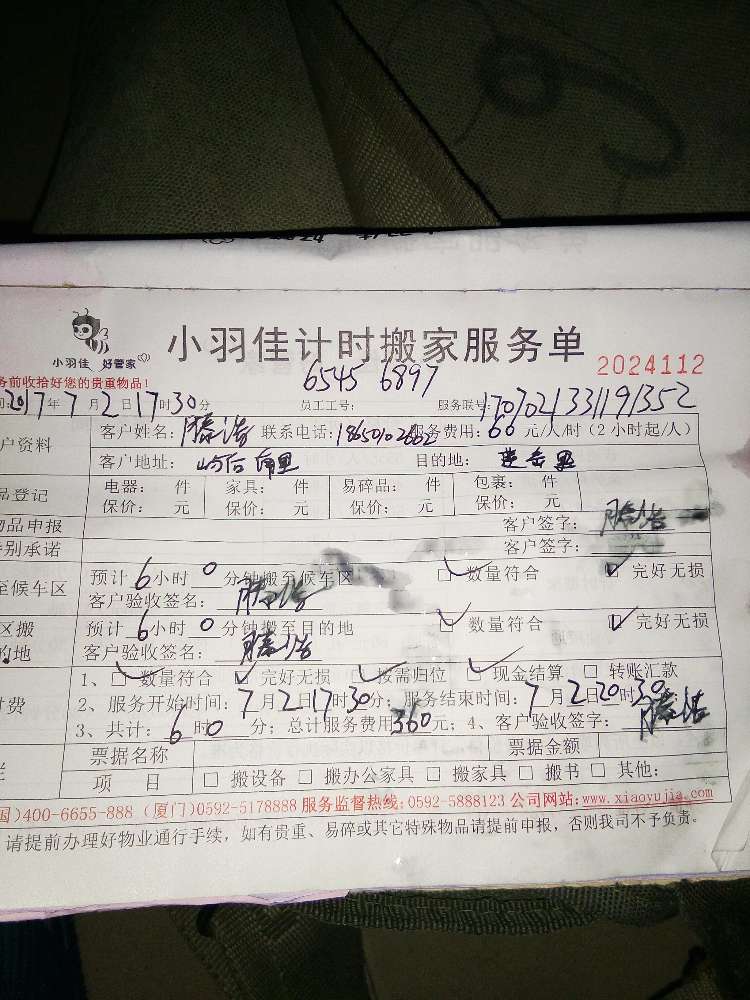 小羽佳 好管家
小羽佳计时搬家服务单
2024112
务前收拾好您的贵重物品!
6545 6897
2017年7月2日17时30分 员工工号: 服务联号:1707021331191352
户资料 客户姓名:滕浩 联系电话: 服务费用:60元/人/时(2小时起/人)
客户地址: 目的地:
品登记 电器: 件 家具: 件 易碎品: 件 包裹: 件
保价: 元 保价: 元 保价: 元 保价: 元
物品申报 客户签字:滕浩
特别承诺 客户签字:
至候车区 预计6小时0分钟搬至候车区 ☑数量符合 ☑完好无损
客户验收签名:滕浩
区搬 预计6小时0分钟搬至目的地 ☑数量符合 ☑完好无损
的地 客户验收签名:滕浩
1、☑数量符合 ☑完好无损 ☑按需归位 ☑现金结算 □转账汇款
付费 2、服务开始时间:7月2日17时30分;服务结束时间:7月2日20时30
3、共计:6时0分;总计服务费用360元;4、客户验收签字:滕浩
票据名称 票据金额
项 目 □搬设备 □搬办公家具 □搬家具 □搬书 □其他:
国)400-6655-888 (厦门)0592-5178888 服务监督热线:0592-5888123 公司网站:www.xiaoyujia.com
请提前办理好物业通行手续,如有贵重、易碎或其它特殊物品请提前申报,否则我司不予负责。